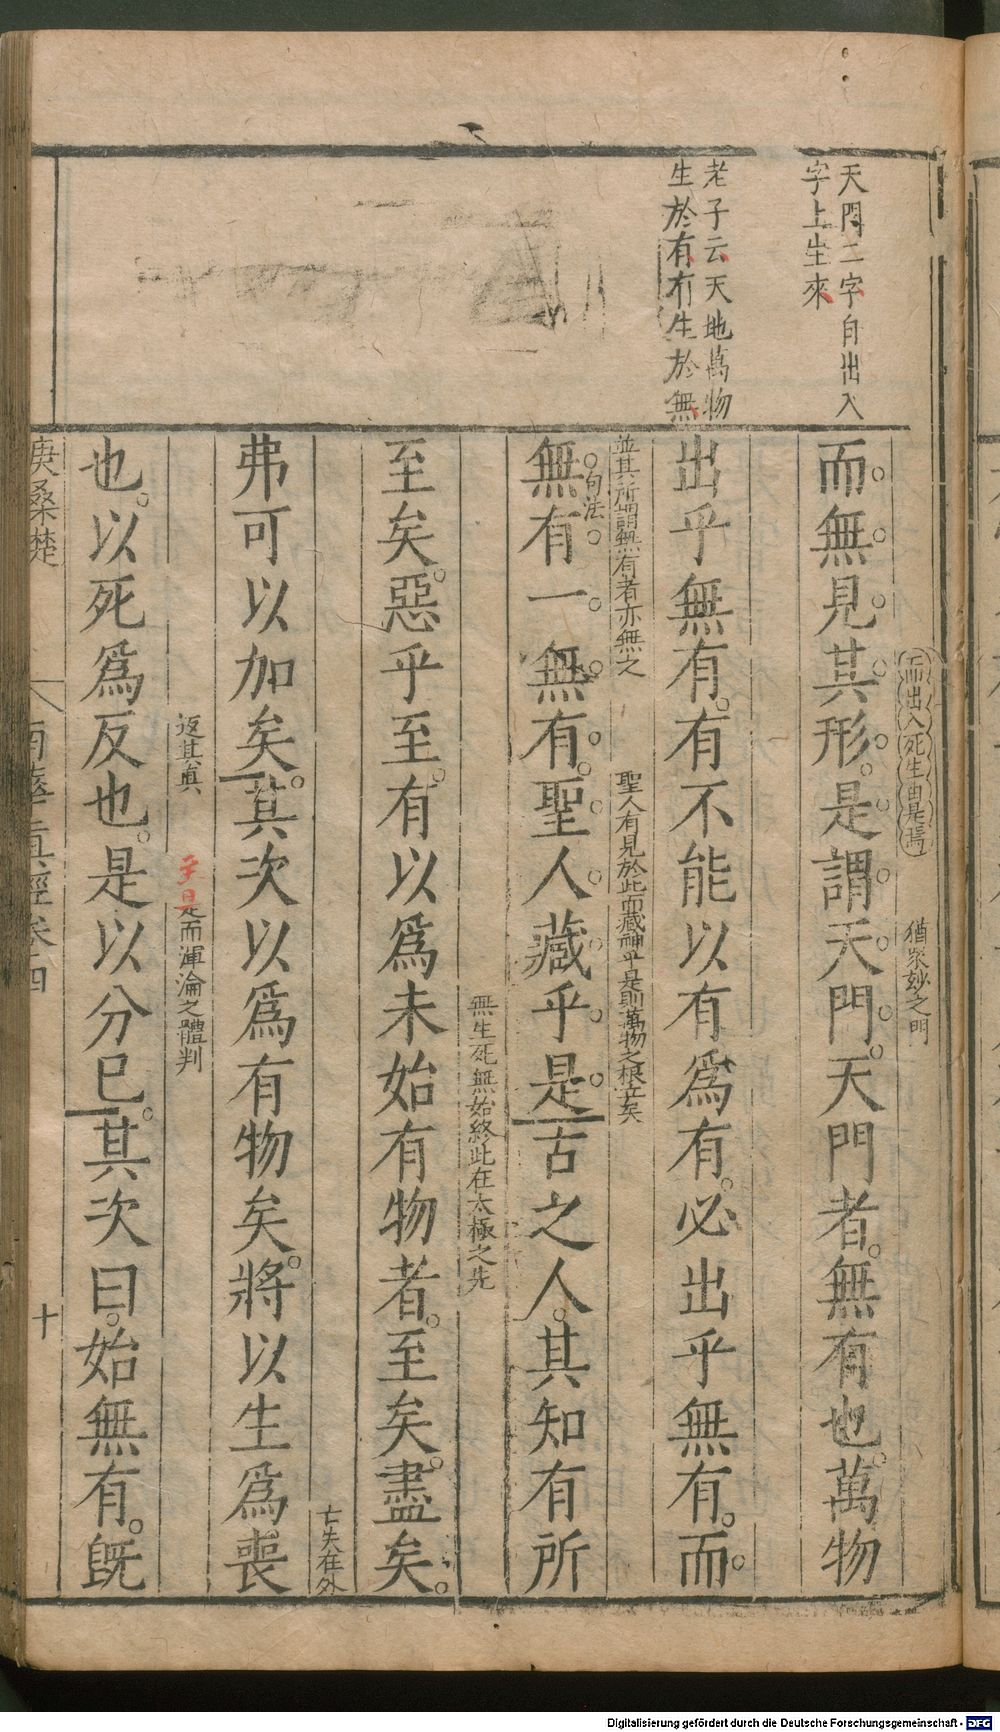 天門二字自出入
字上生來
老子云天地萬物
生於有有生於無
而出入死生由是焉
猶衆妙之門
而無見其形是謂天門天門者無有也萬物
出乎無有有不能以有爲有必出乎無有而
並其所謂無有者亦無之
聖人有見於此而藏神乎是則萬物之根立矣
句法
無有一無有聖人藏乎是古之人其知有所
無生死無始終此在太極之先
至矣惡乎至有以爲未始有物者至矣盡矣
亡失在外
弗可以加矣其次以爲有物矣將以生爲喪
返其眞
至是是而渾淪之體判
也以死爲反也是以分已其次曰始無有旣
庚桑楚
南華眞經卷四
十
Digitalisierung gefördert durch die Deutsche Forschungsgemeinschaft - DFG